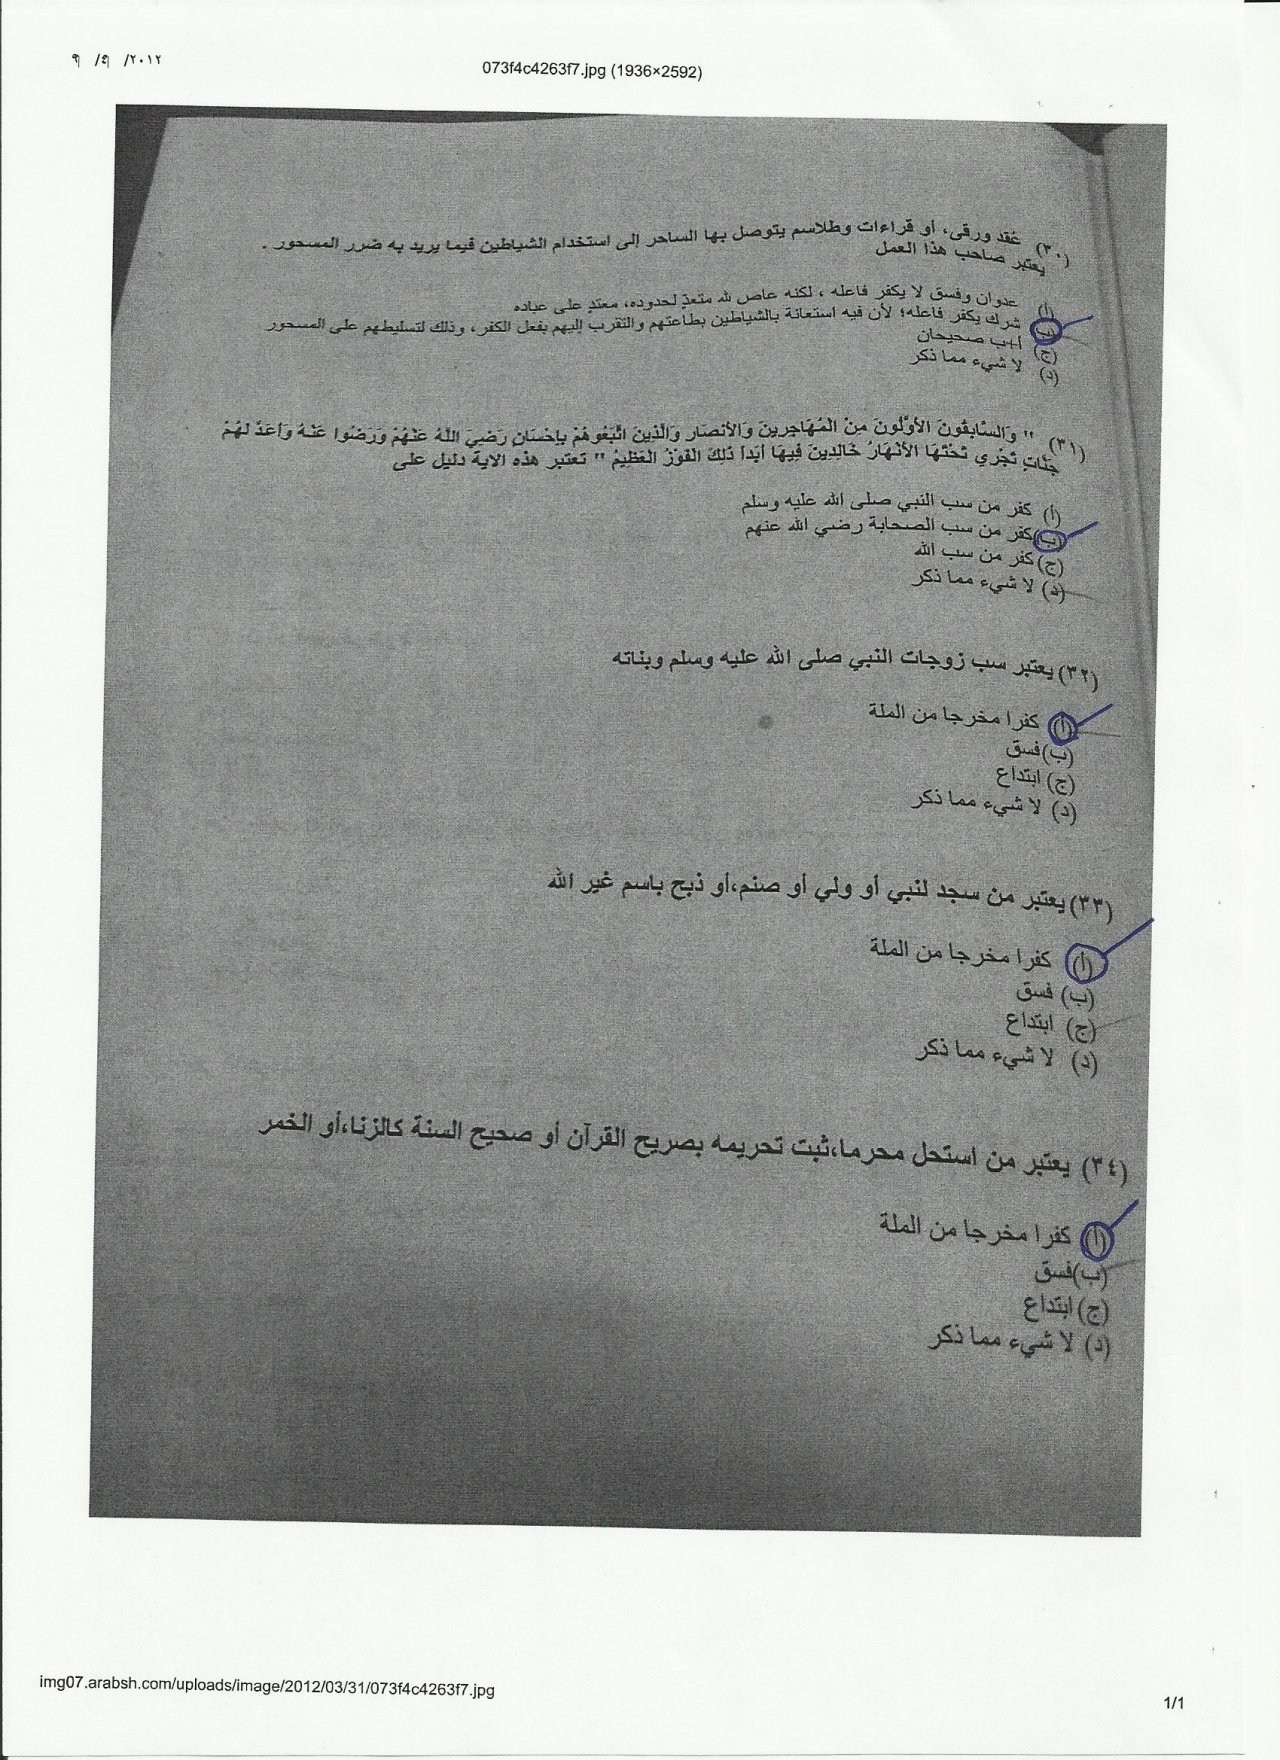 ٢٠١٢/ ٤/ ٩
073f4c4263f7.jpg (1936×2592)
(٣٠) عُقد ورقى، أو قراءات وطلاسم يتوصل بها الساحر إلى استخدام الشياطين فيما يريد به ضرر المسحور .
يعتبر صاحب هذا العمل
(أ) عدوان وفسق لا يكفر فاعله ، لكنه عاص لله متعدّ لحدوده، معتدٍ على عباده
(ب) شرك يكفر فاعله؛ لأن فيه استعانة بالشياطين بطاعتهم والتقرب إليهم بفعل الكفر، وذلك لتسليطهم على المسحور
(ج) أ+ب صحيحان
(د) لا شيء مما ذكر
(٣١) " وَالسَّابِقُونَ الأَوَّلُونَ مِنْ الْمُهَاجِرِينَ وَالأَنصَارِ وَالَّذِينَ اتَّبَعُوهُمْ بِإِحْسَانٍ رَضِيَ اللَّهُ عَنْهُمْ وَرَضُوا عَنْهُ وَأَعَدَّ لَهُمْ
جَنَّاتٍ تَجْرِي تَحْتَهَا الأَنْهَارُ خَالِدِينَ فِيهَا أَبَداً ذَلِكَ الْفَوْزُ الْعَظِيمُ " تعتبر هذه الاية دليل على
(أ) كفر من سب النبي صلى الله عليه وسلم
(ب) كفر من سب الصحابة رضي الله عنهم
(ج) كفر من سب الله
(د) لا شيء مما ذكر
(٣٢) يعتبر سب زوجات النبي صلى الله عليه وسلم وبناته
(أ) كفرا مخرجا من الملة
(ب) فسق
(ج) ابتداع
(د) لا شيء مما ذكر
(٣٣) يعتبر من سجد لنبي أو ولي أو صنم،أو ذبح باسم غير الله
(أ) كفرا مخرجا من الملة
(ب) فسق
(ج) ابتداع
(د) لا شيء مما ذكر
(٣٤) يعتبر من استحل محرما،ثبت تحريمه بصريح القرآن أو صحيح السنة كالزنا،أو الخمر
(أ) كفرا مخرجا من الملة
(ب) فسق
(ج) ابتداع
(د) لا شيء مما ذكر
img07.arabsh.com/uploads/image/2012/03/31/073f4c4263f7.jpg
1/1